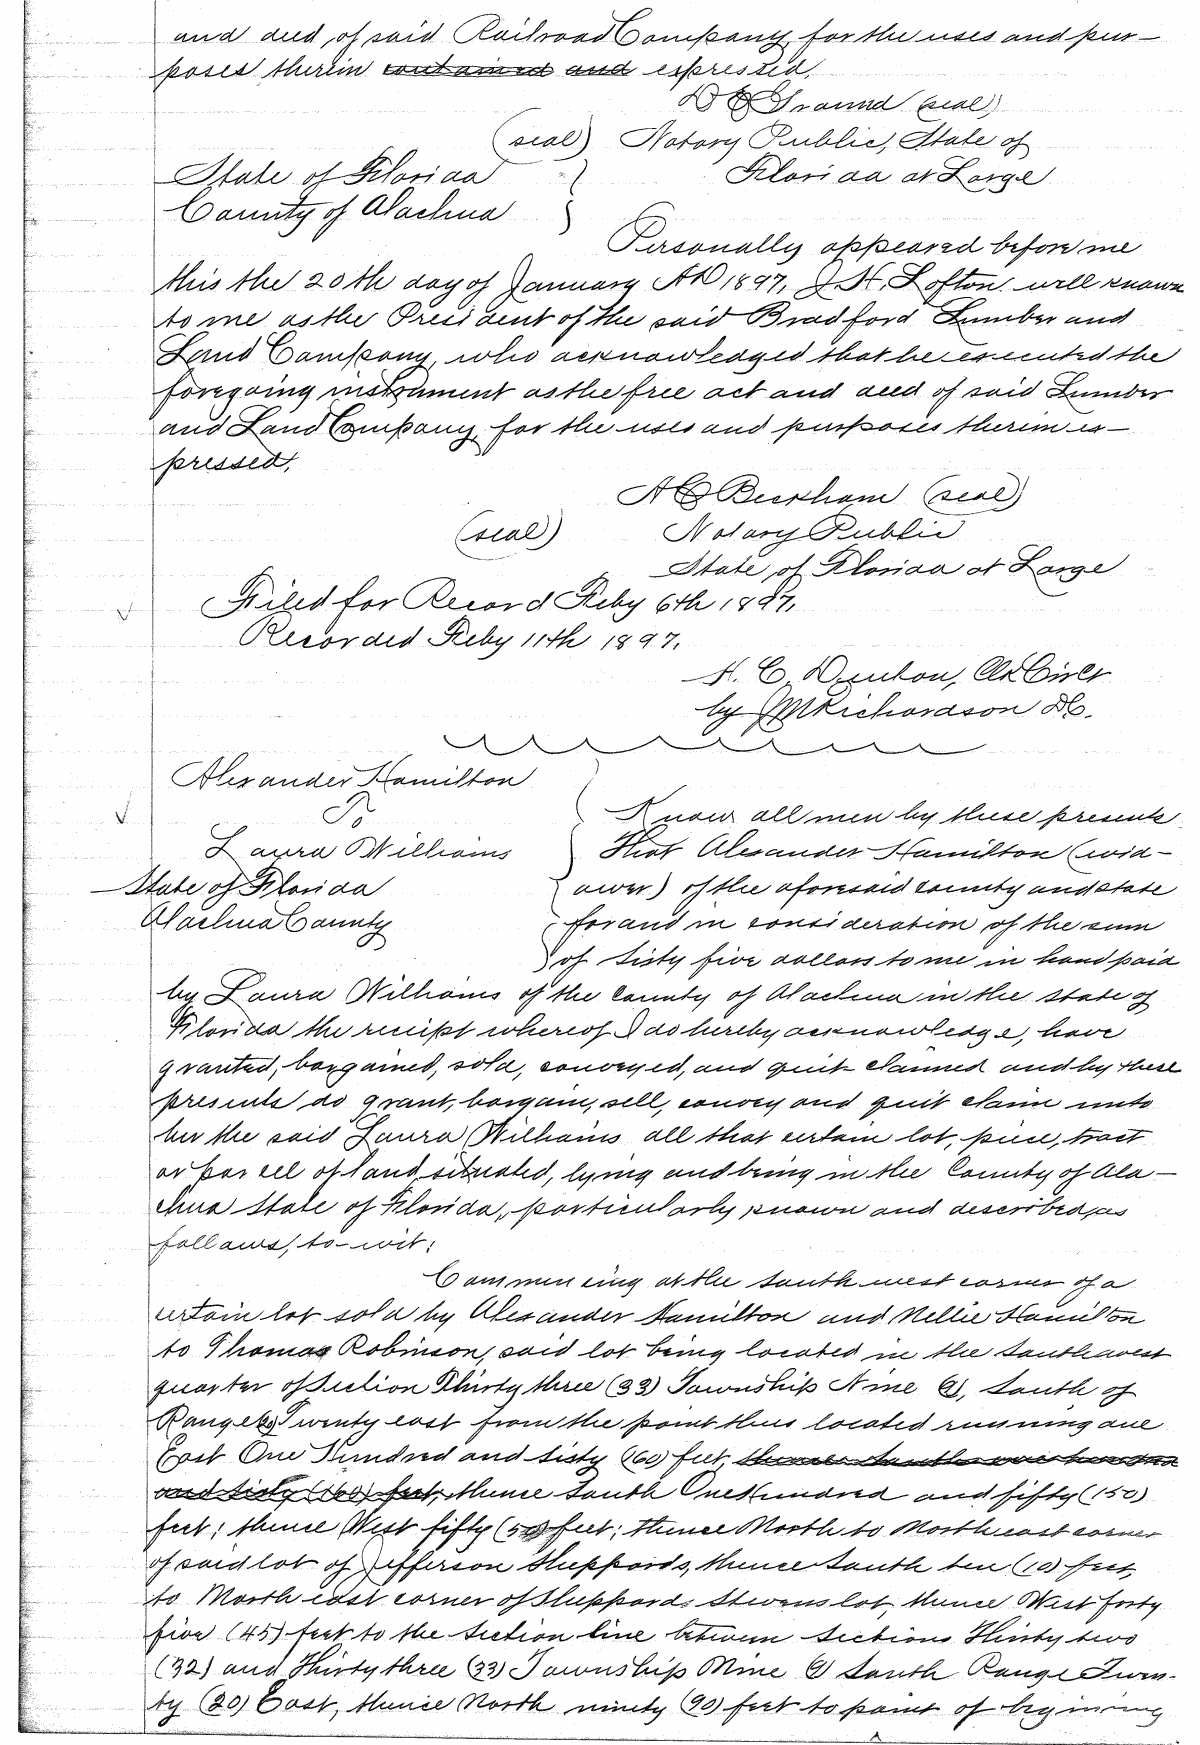 and deed of said Railroad Company for the uses and pur-
poses therein contained and expressed.
(seal)
(seal) Notary Public, State of
Florida at Large
State of Florida
County of Alachua
Personally appeared before me
this the 20th day of January AD 1897, J. H. Lofton well known
to me as the President of the said Bradford Lumber and
Land Company, who acknowledged that he executed the
foregoing instrument as the free act and deed of said Lumber
and Land Company for the uses and purposes therein ex-
pressed.
A C Beckham (seal)
(seal) Notary Public
State of Florida at Large
Filed for Record Feby 6th 1897.
Recorded Feby 11th 1897.
H. C. Denton, Clk Circt
by JM Richardson DC.
Alexander Hamilton
To
Laura Williams
State of Florida
Alachua County
Know all men by these presents
That Alexander Hamilton (wid-
ower) of the aforesaid county and state
for and in consideration of the sum
of sixty five dollars to me in hand paid
by Laura Williams of the County of Alachua in the state of
Florida the receipt whereof I do hereby acknowledge, have
granted, bargained, sold, conveyed, and quit claimed and by these
presents do grant, bargain, sell, convey and quit claim unto
her the said Laura Williams all that certain lot, piece, tract
or parcel of land situated, lying and being in the County of Ala-
chua State of Florida, particularly known and described as
follows, to-wit:
Commencing at the south west corner of a
certain lot sold by Alexander Hamilton and Nellie Hamilton
to Thomas Robinson, said lot being located in the Southwest
quarter of Section Thirty three (33) Township Nine 9, South of
Range Twenty east from the point thus located running due
East One Hundred and sixty (160) feet, thence South one hundred
and sixty (160) feet, thence South One Hundred and fifty (150)
feet; thence West fifty (50) feet; thence North to North east corner
of said lot of Jefferson Sheppards, thence South ten (10) feet,
to North east corner of Sheppards Stevens lot, thence West forty
five (45) feet to the section line between sections Thirty two
(32) and Thirty three (33) Township Nine 9 South Range Twen-
ty (20) East, thence North ninety (90) feet to point of beginning